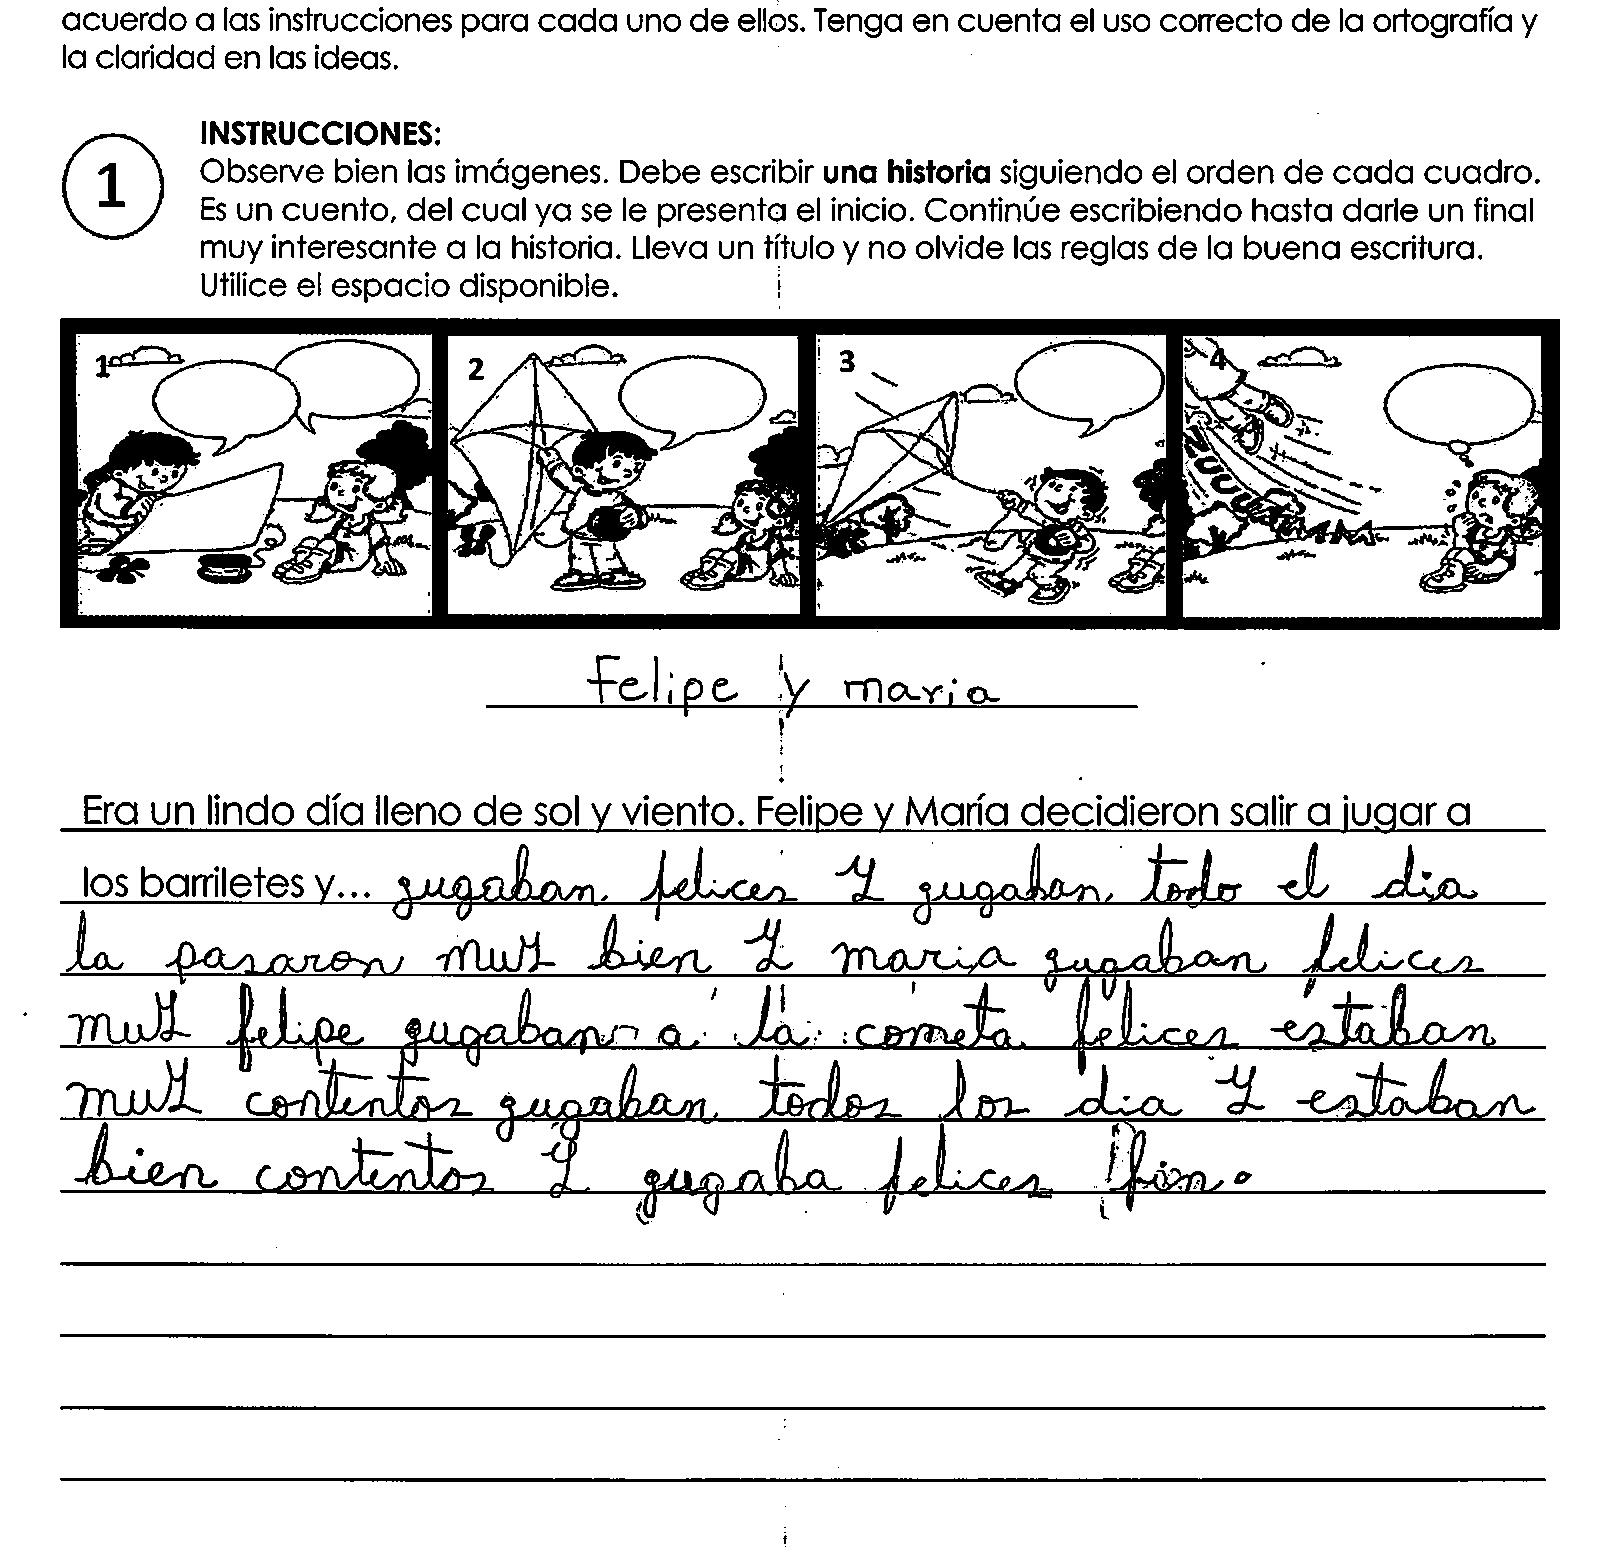 acuerdo a las instrucciones para cada uno de ellos. Tenga en cuenta el uso correcto de la ortografía y
la claridad en las ideas.
1
INSTRUCCIONES:
Observe bien las imágenes. Debe escribir una historia siguiendo el orden de cada cuadro.
Es un cuento, del cual ya se le presenta el inicio. Continúe escribiendo hasta darle un final
muy interesante a la historia. Lleva un título y no olvide las reglas de la buena escritura.
Utilice el espacio disponible.
1 2 3 4
Felipe y maria
Era un lindo día lleno de sol y viento. Felipe y María decidieron salir a jugar a
los barriletes y... gugaban felices y gugaban todo el dia
la pasaron muy bien y maria gugaban felices
muy felipe gugaban a la cometa felices estaban
muy contentos gugaban todos los dia y estaban
bien contentos y gugaba felices fin.